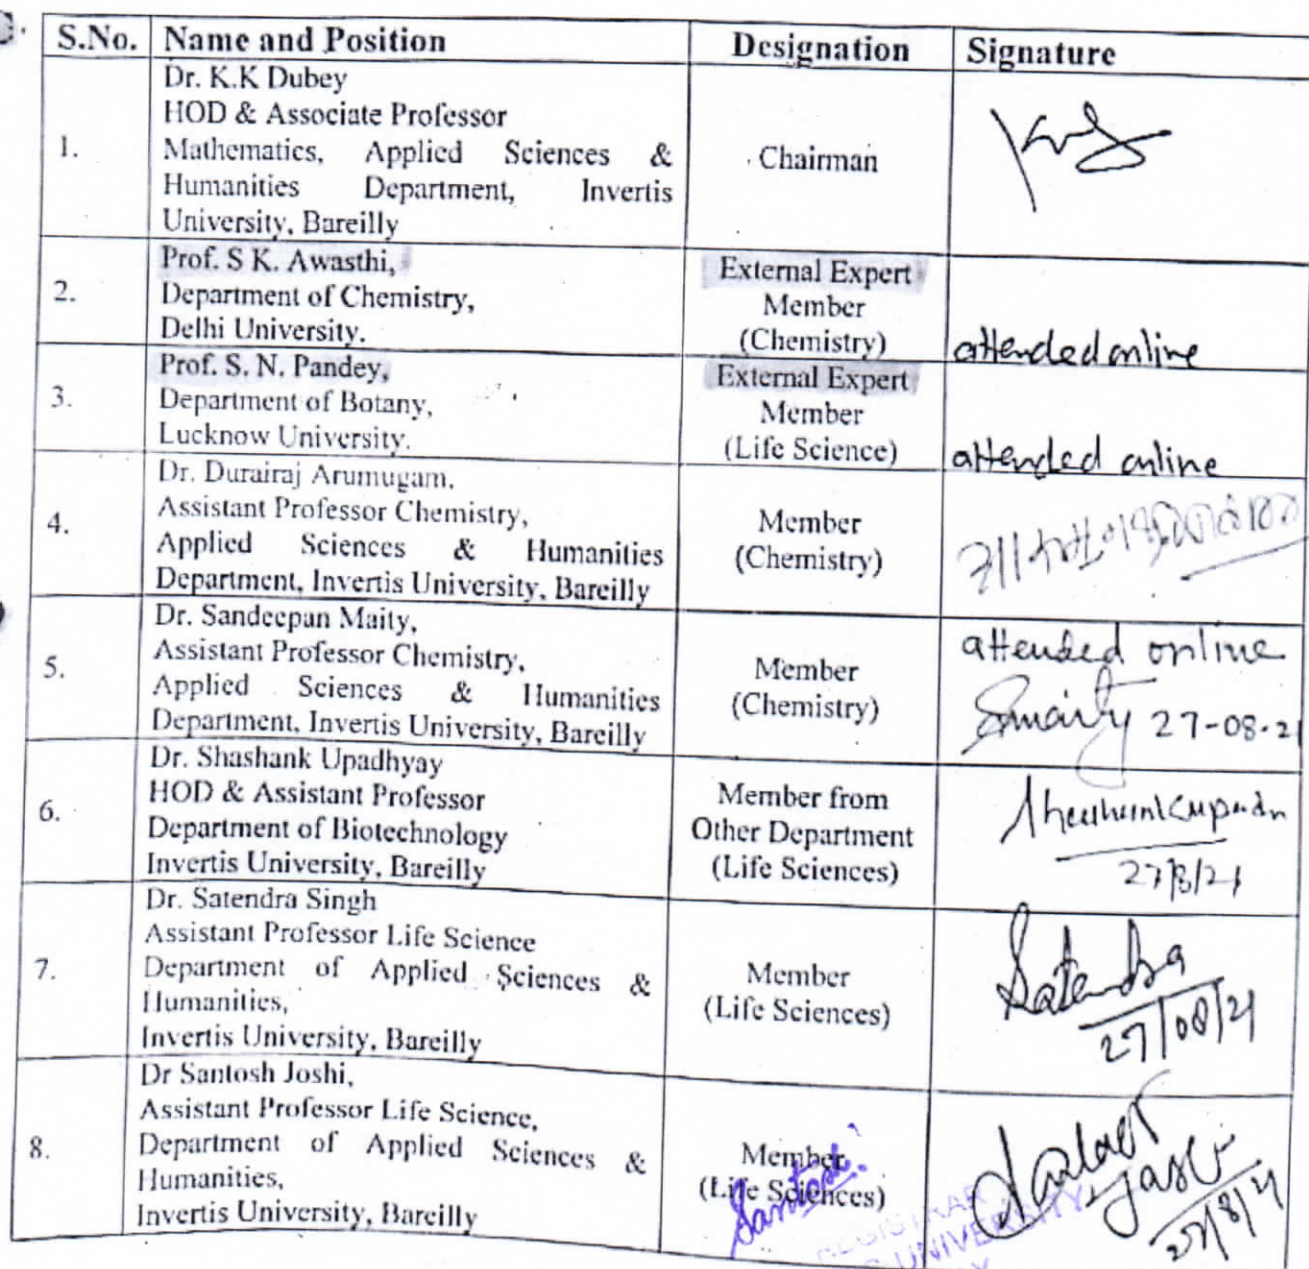 S.No. Name and Position Designation Signature
1.
Dr. K.K Dubey
HOD & Associate Professor
Mathematics, Applied Sciences &
Humanities Department, Invertis
University, Bareilly
Chairman
2.
Prof. S K. Awasthi,
Department of Chemistry,
Delhi University.
External Expert
Member
(Chemistry)
attended online
3.
Prof. S. N. Pandey,
Department of Botany,
Lucknow University.
External Expert
Member
(Life Science)
attended online
4.
Dr. Durairaj Arumugam,
Assistant Professor Chemistry,
Applied Sciences & Humanities
Department, Invertis University, Bareilly
Member
(Chemistry)
5.
Dr. Sandeepan Maity,
Assistant Professor Chemistry,
Applied Sciences & Humanities
Department, Invertis University, Bareilly
Member
(Chemistry)
attended online
Smaity 27-08-21
6.
Dr. Shashank Upadhyay
HOD & Assistant Professor
Department of Biotechnology
Invertis University, Bareilly
Member from
Other Department
(Life Sciences)
27/8/21
7.
Dr. Satendra Singh
Assistant Professor Life Science
Department of Applied Sciences &
Humanities,
Invertis University, Bareilly
Member
(Life Sciences)
Satendra
27/08/21
8.
Dr Santosh Joshi,
Assistant Professor Life Science,
Department of Applied Sciences &
Humanities,
Invertis University, Bareilly
Member
(Life Sciences)
Santosh
27/8/21
REGISTRAR
UNIVERSITY